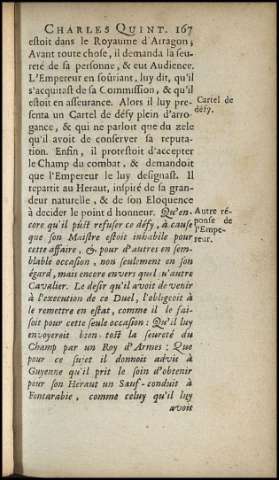 CHARLES QUINT. 167
estoit dans le Royaume d'Arragon;
Avant toute chose, il demanda la seu-
reté de sa personne, & eut Audience.
L'Empereur en soûriant, luy dit, qu'il
s'acquitast de sa Commission, & qu'il
estoit en asseurance. Alors il luy pre-
senta un Cartel de défy plein d'arro-
gance, & qui ne parloit que du zele
qu'il avoit de conserver sa reputa-
tion. Enfin, il protestoit d'accepter
le Champ du combat, & demandoit
que l'Empereur le designast. Il
repartit au Heraut, inspiré de sa gran-
deur naturelle, & de son Eloquence
à decider le point d'honneur. Qu'en-
core qu'il pûst refuser ce défy, à cause
que son Maistre estoit inhabile pour
cette affaire, & pour d'autres en sem-
blable occasion, non seulement en son
égard, mais encore envers quel qu'autre
Cavalier. Le desir qu'il avoit de venir
à l'execution de ce Duel, l'obligeoit à
le remettre en estat, comme il le fai-
soit pour cette seule occasion: Qu'il luy
envoyeroit bien-tost la seureté du
Champ par un Roy d'Armes: Que
pour ce sujet il donnoit advis à
Guyenne qu'il prit le soin d'obtenir
pour son Heraut un Sauf-conduit à
Fontarabie, comme celuy qu'il luy
avoit
Cartel de
défy.
Autre ré-
ponse de
l'Empe-
reur.